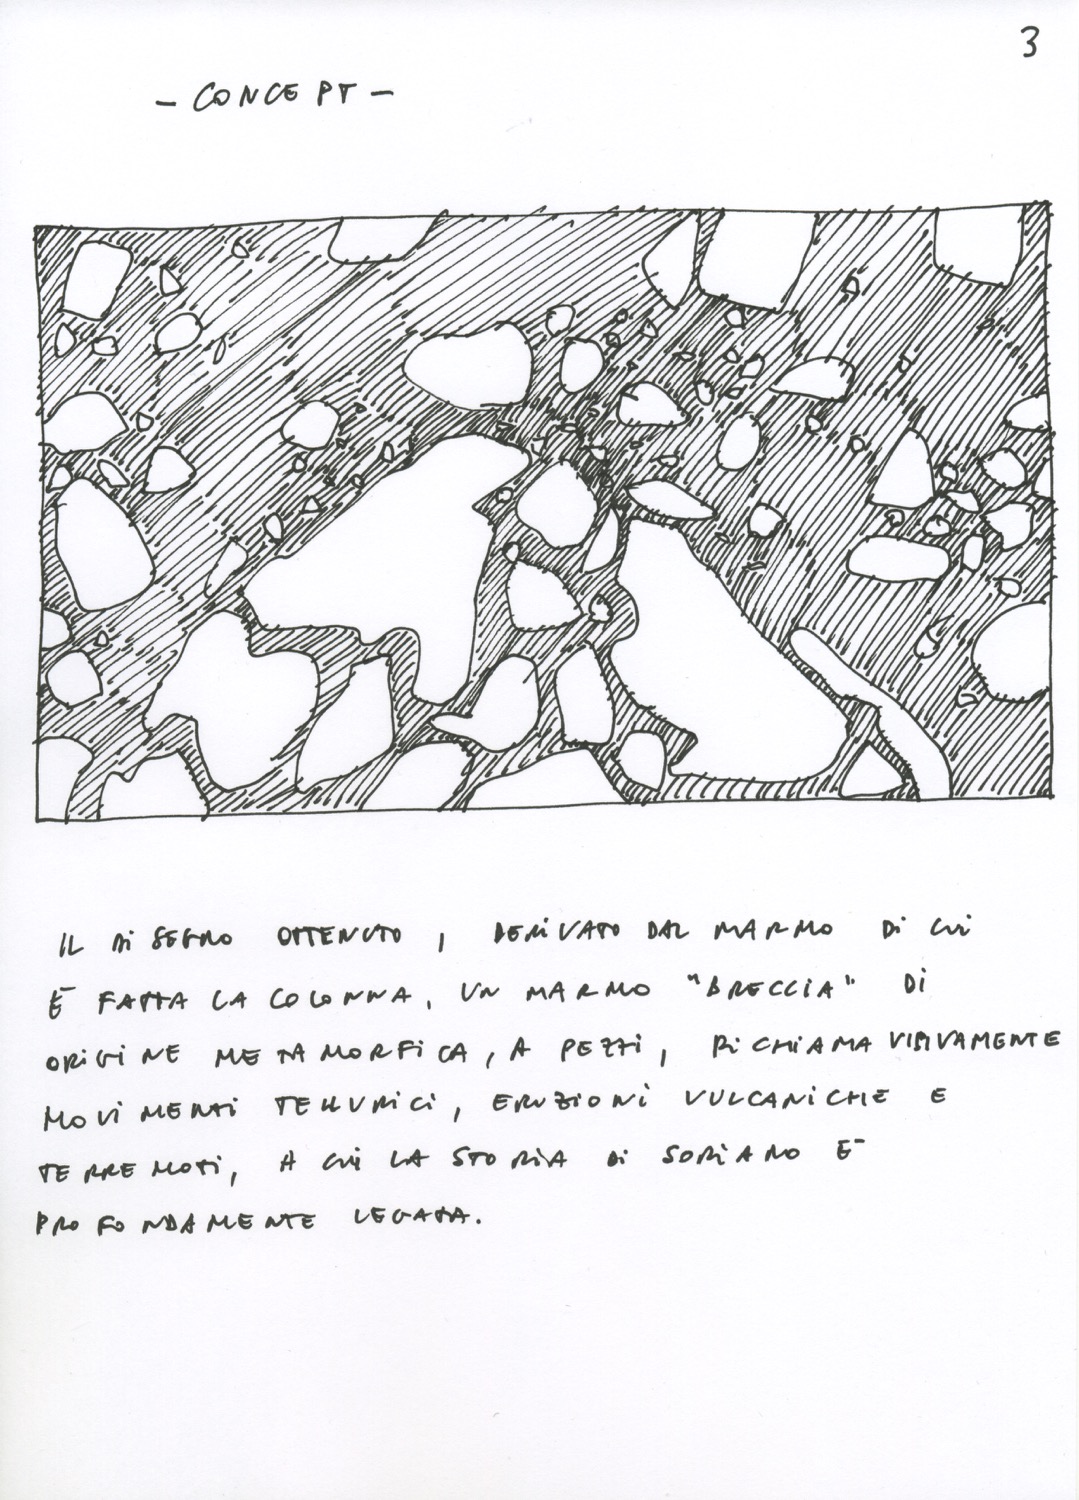 3
- CONCEPT -
IL DISEGNO OTTENUTO, DERIVATO DAL MARMO DI CUI
È FATTA LA COLONNA, UN MARMO "BRECCIA" DI
ORIGINE METAMORFICA, A PEZZI, RICHIAMA VISIVAMENTE
MOVIMENTI TELLURICI, ERUZIONI VULCANICHE E
TERREMOTI, A CUI LA STORIA DI SORIANO È
PROFONDAMENTE LEGATA.